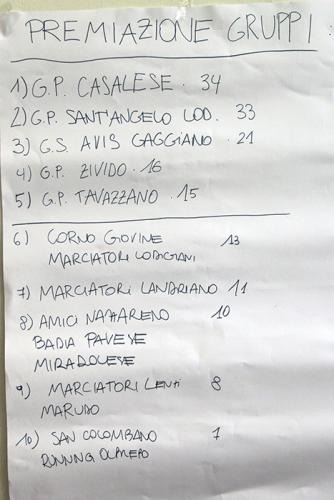 PREMIAZIONE GRUPPI :
1) G.P. CASALESE . 34
2) G.P. SANT'ANGELO LOD. 33
3) G.S. AVIS GAGGIANO . 21
4) G.P. ZIVIDO . 16
5) G.P. TAVAZZANO . 15
6) CORNO GIOVINE 13
MARCIATORI LODIGIANI
7) MARCIATORI LANDRIANO 11
8) AMICI NAZZARENO 10
BADIA PAVESE
MIRADOLESE
9) MARCIATORI LENTI 8
MARUDO
10) SAN COLOMBANO 7
RUNNING OLMERO